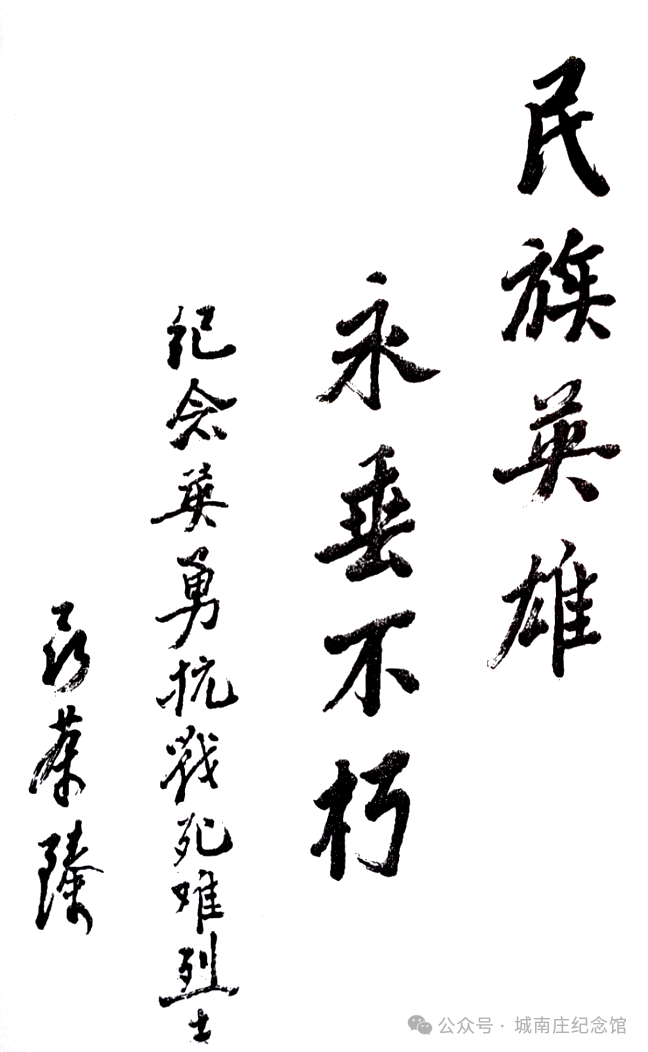 民族英雄
永垂不朽
纪念英勇抗战死难烈士
聂荣臻
公众号 · 城南庄纪念馆